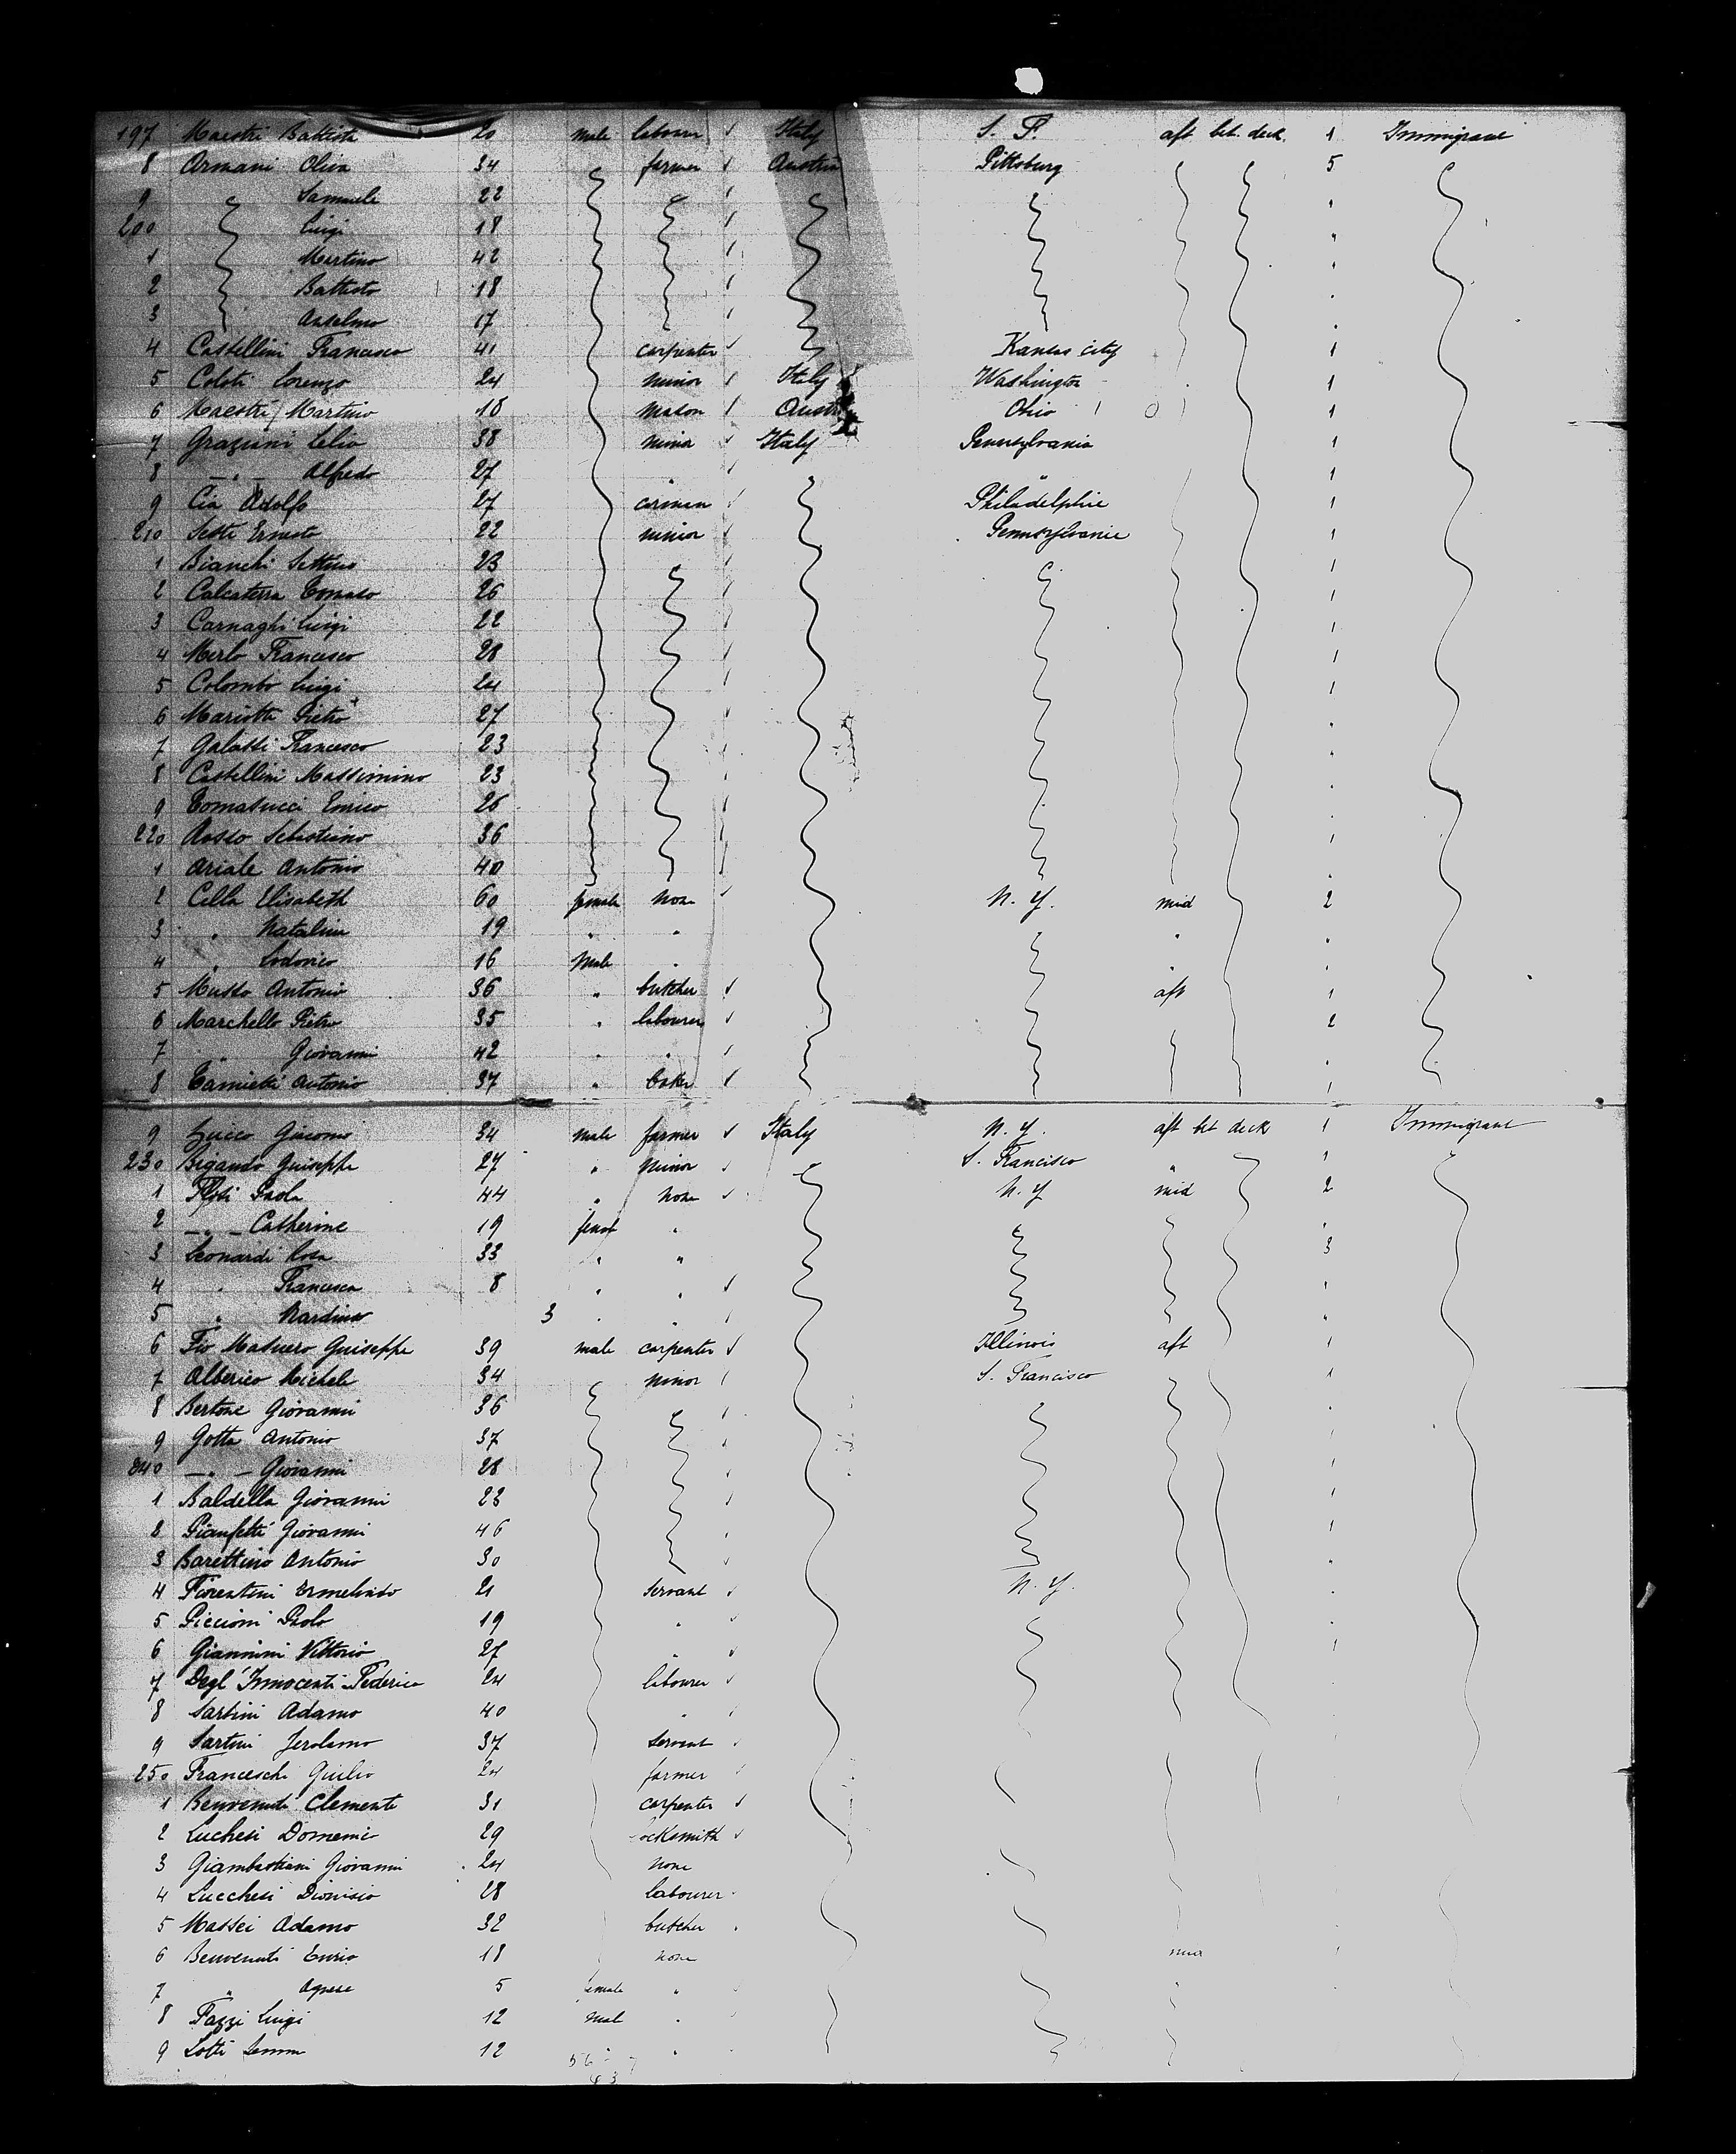 197 Maestri Battista 20 male labourer Italy S. F. aft bet. deck. 1 Immigrant
8 Armani Oliva 34 farmer Austria Pittsburg 5
9 Samuele 22 "
200 Luigi 18 "
1 Martino 42 "
2 Battista 18 "
3 Anselmo 17 "
4 Castellini Francesco 41 carpenter Kansas city 1
5 Coloti Lorenzo 24 minor Italy Washington 1
6 Maestri Martino 18 mason Austria Ohio 1
7 Graziani Lelio 38 minor Italy Pennsylvania 1
8 " Alfredo 27 " " 1
9 Cia Adolfo 27 carman Philadelphia 1
210 Sette Ernesto 22 minor Pennsylvania 1
1 Bianchi Settimo 23 1
2 Calcaterra Tomaso 26 1
3 Carnaghi Luigi 22 1
4 Merlo Francesco 28 1
5 Colombo Luigi 24 1
6 Mariotti Pietro 27
7 Galassi Francesco 23
8 Castellini Massimino 23
9 Tomasucci Enrico 26
220 Rosso Sebastiano 36
1 Ariale Antonio 40
2 Cella Elisabeth 60 female none N. Y. mid 2
3 " Natalina 19 " " " "
4 " Lodovico 16 Male " " "
5 Musso Antonio 36 " butcher aft 1
6 Marchello Pietro 35 " labourer 2
7 " Giovanni 42 " " "
8 Tamietti Antonio 37 " baker 1
9 Giacomo 34 male farmer Italy N. Y. aft bet deck 1 Immigrant
230 Bigando Guiseppe 27 " minor S. Francisco " 1
1 Paola 44 " none N. Y mid 2
2 " Catherine 19 femal " "
3 Leonardi Rosa 33 " " 3
4 " Francesca 8 " " "
5 " Nardina 3 " " "
6 Fio Masuero Guiseppe 39 male carpenter Illinois aft 1
7 Alberico Michele 34 minor S. Francisco 1
8 Bertone Giovanni 36
9 Gotta Antonio 37
240 " Giovanni 28
1 Baldella Giovanni 23
2 Pianfetti Giovanni 46
3 Barettino Antonio 30
4 Fiorentini Ermelindo 21 servant N. Y.
5 Piccioni Paolo 19 "
6 Giannini Vittorio 27 "
7 Degl'Innocenti Federico 24 labourer
8 Sartini Adamo 40 "
9 Sartini Jerolamo 37 servent
250 Franceschi Giulio 24 farmer
1 Benvenuti Clemente 31 carpenter
2 Luchesi Domenico 29 locksmith
3 Giambastiani Giovanni 24 none
4 Lucchesi Dionisio 28 labourer
5 Massei Adamo 32 butcher
6 Benvenuti Enrico 18 none mid
7 " Agnese 5 female " "
8 Fazzi Luigi 12 mal "
9 Lotti 12 " "